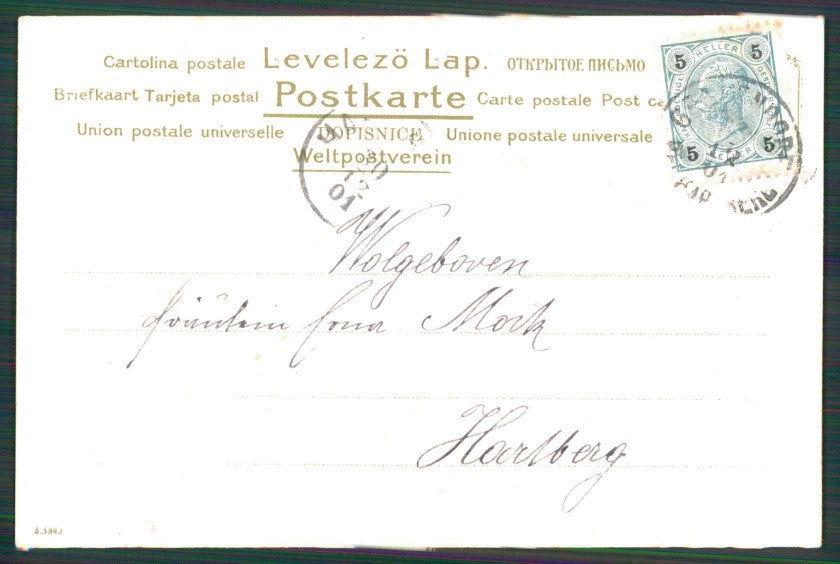 Cartolina postale Levelező Lap. ОТКРЫТОЕ ПИСЬМО
Briefkaart Tarjeta postal Postkarte Carte postale Post ca
Union postale universelle DOPISNICE Unione postale universale
Weltpostverein
5 HELLER 5
5 HELLER 5
12
01
01
Wolgeboven
Fräulein Erna Mock
Hartberg